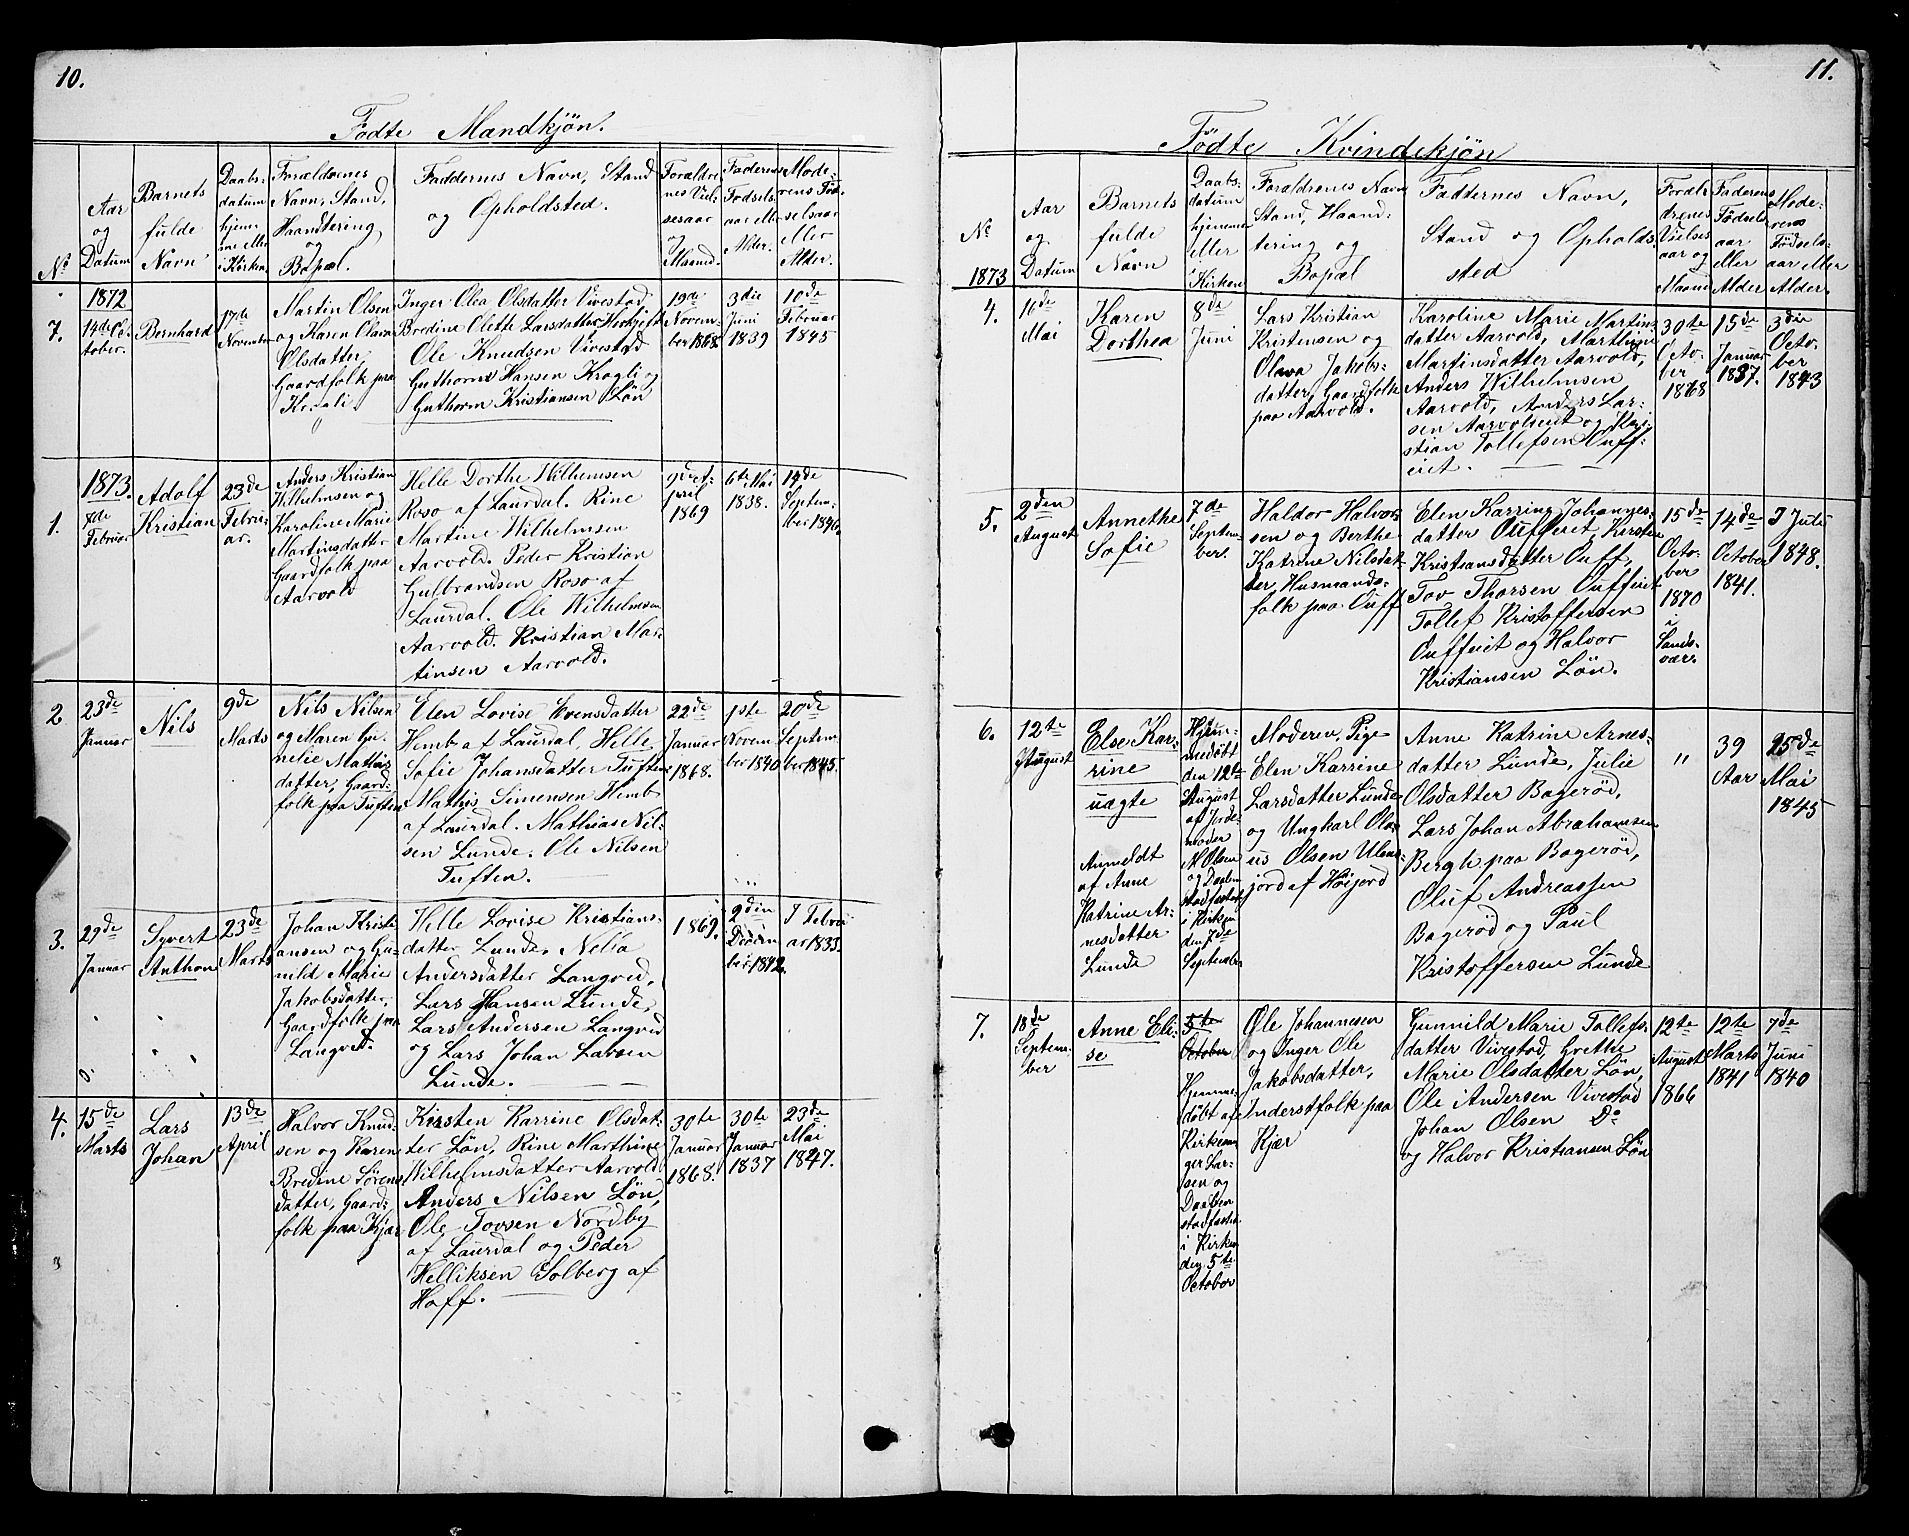 10.
Fødte Mandkjøn.
No
Aar
og
Datum
Barnets
fulde
Navn
Daabs-
datum
hjemme
eller
i Kirken
Forældrenes
Navn, Stand,
Haandtering
og
Bopæl.
Faddernes Navn, Stand
og Opholdsted.
Forældre-
nes Viel-
sesaar
og
Maaned.
Faderens
Fødsels-
aar eller
Alder.
Mode-
rens Fød-
selsaar
eller
Alder.
7.
1872
14de Oc-
tober.
Bernhard
17de
November
Martin Olsen
og Karen Olava
Olsdatter
Gaardfolk paa
Inger Olea Olsdatter Vivestad
Bredine Olette Larsdatter
Ole Knudsen Vivestad
Guthorm Hansen Kragli og
Guthorm Kristiansen Løn
19de
Novem-
ber 1868.
3die
Juni
1839
10de
Februar
1845
1.
1873.
8de
Februar
Adolf
Kristian
23de
Febru-
ar.
Anders Kristian
Wilhelmsen og
Karoline Marie
Martinsdatter
Gaardfolk paa
Aarvold
Helle Dorthe Wilhemsen
Roso af Laurdal. Rine
Martine Wilhelmsen
Aarvold. Peder Kristian
Gulbrandsen Roso af
Laurdal. Ole Wilhelmsen
Aarvold. Kristian Mar-
tinsen Aarvold.
9de A-
pril
1869
6te Mai
1838.
14de
Septem-
ber 1846.
2
23de
Januar
Nils
9de
Marts
Nils Nilsen
og Maren Gu-
nelie Mathis
datter, Gaard-
folk paa Tuften
Elen Lovise Evensdatter
Hemb af Laurdal, Helle
Sofie Johansdatter Tuften
Mathis Simensen Hemb
af Laurdal. Mathias Nil-
sen Lunde. Ole Nilsen
Tuften.
22de
Januar
1868.
1ste
Novem
ber 1840
20de
Septem
ber 1845.
3.
29de
Januar
Syvert
Anthon
23de
Marts
Johan Kristi-
ansen og Gu-
nild Marie
Jakobsdatter,
Gaardfolk paa
Langved.
Helle Lovise Kristians-
datter Lunde, Nelia
Andersdatter Langved,
Lars Hansen Lunde,
Lars Andersen Langved
og Lars Johan Larsen
Lunde.
1869.
2den
Decem
ber 1842.
I Febru
ar 1833.
4.
15de
Marts
Lars
Johan
13de
April
Halvor Knud-
sen og Karen
Bredine Sørens
datter, Gaard-
folk paa Kjær
Kirsten Karrine Olsdat-
ter Løn, Rine Marthine
Wilhelmsdatter Aarvold
Anders Nilsen Løn,
Ole Tovsen Nordby
af Laurdal og Peder
Helliksen Solberg af
Hoff.
30te
Januar
1868.
30te
Januar
1837
23de
Mai
1847.
11.
Fødte Kvindekjøn
No
1873
Aar
og
Datum
Barnets
fulde
Navn
Daabs-
datum
hjemme
eller
i Kirken
Forældrenes Navn
Stand, Haand-
tering og
Bopæl
Faddernes Navn,
Stand og Opholds
sted
Foræl-
drenes
Vielses
aar og
Maaned
Faderens
Fødsels
aar
eller
Alder
Mode-
rens
Fødsels-
aar eller
Alder.
4.
16de
Mai
Karen
Dorthea
8de
Juni
Lars Kristian
Kristensen og
Olava Jakobs-
datter, Gaardfolk
paa Aarvold.
Karoline Marie Martins-
datter Aarvold, Marthine
Martinsdatter Aarvold,
Anders Wilhelmsen
Aarvold, Anders Lar-
sen Aarvolseiet og Kri-
stian Tollefsen Ouff-
eiet.
30te
Octo-
ber
1868
15de
Januar
1837.
3die
Octo-
ber
1843
5.
2den
August
Annethe
Sofie
7de
Septem
ber.
Haldor Halvor-
sen og Berthe
Katrine Nilsdat-
ter, Husmands-
folk paa Ouff
Elen Karrine Johannes-
datter Ouffeiet, Kirsten
Kristiansdatter Ouff,
Tov Thorsen Ouffeiet
Tollef Kristoffersen
Ouffeiet og Halvor
Kristiansen Løn.
15de
Octo-
ber
1870
i
Sands-
vær.
14de
October
1841.
I Juli
1848.
6.
12te
August
Else Kar-
rine
uægte
Anmeldt
af Anne
Katrine Ar-
nesdatter
Lunde
Hjem-
medøbt
den 12te
August
af Jorde-
moder
M Olsen
og Daaben
stadfæstet
i Kirken
den 7de
September
Moderen, Pige
Elen Karrine
Larsdatter Lunde
og Ungkarl Ola-
us Olsen Ulens-
jord af Høijord
Anne Katrine Arnes-
datter Lunde, Julie
Olsdatter Bagerød,
Lars Johan Abrahamsen
Bergh paa Bagerød,
Oluf Andreassen
Bagerød og Paul
Kristoffersen Lunde
"
39
Aar
25de
Mai
1845
7.
18de
Septem-
ber
Anne Eli-
se
5te
October
Hjemme-
døbt af
Kirkesan
ger Lar-
sen og
Daaben
stadfæstet
i Kirken
den 5te
October
Ole Johannesen
og Inger Ole
Jakobsdatter,
Inderstfolk paa
Kjær
Gunnild Marie Tollefs-
datter Vivestad, Grethe
Marie Olsdatter Løn,
Ole Andersen Vivestad
Johan Olsen Do
og Halvor Kristiansen Løn
12te
August
1866
12te
Marts
1841
7de
Juni
1840